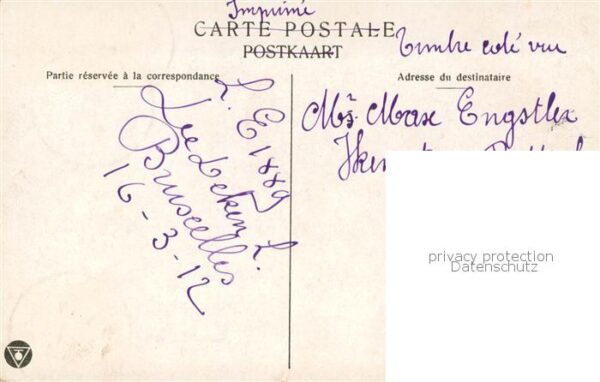 Imprimé
CARTE POSTALE
POSTKAART
Timbre coté vue
Partie réservée à la correspondance
Adresse du destinataire
L. E 1889
Bruxelles
16-3-12
Mr. Max Engstler
privacy protection
Datenschutz